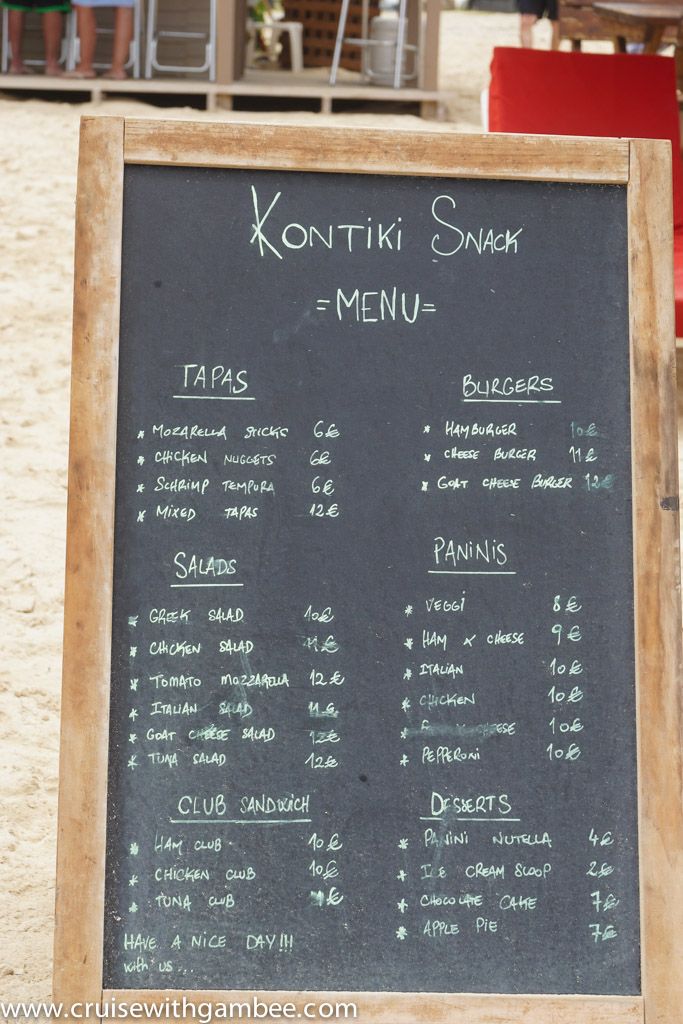 KONTIKI SNACK
=MENU=
TAPAS
* MOZARELLA STICKS 6€
* CHICKEN NUGGETS 6€
* SCHRIMP TEMPURA 6€
* MIXED TAPAS 12€
SALADS
* GREEK SALAD 10€
* CHICKEN SALAD 11€
* TOMATO MOZZARELLA 12€
* ITALIAN SALAD 11€
* GOAT CHEESE SALAD 12€
* TUNA SALAD 12€
CLUB SANDWICH
* HAM CLUB 10€
* CHICKEN CLUB 10€
* TUNA CLUB €
HAVE A NICE DAY!!!
with us...
BURGERS
* HAMBURGER 10€
* CHEESE BURGER 11€
* GOAT CHEESE BURGER 12€
PANINIS
* VEGGI 8€
* HAM & CHEESE 9€
* ITALIAN 10€
* CHICKEN 10€
* CHEESE 10€
* PEPPERONI 10€
DESSERTS
* PANINI NUTELLA 4€
* ICE CREAM SCOOP 2€
* CHOCOLATE CAKE 7€
* APPLE PIE 7€
www.cruisewithgambee.com